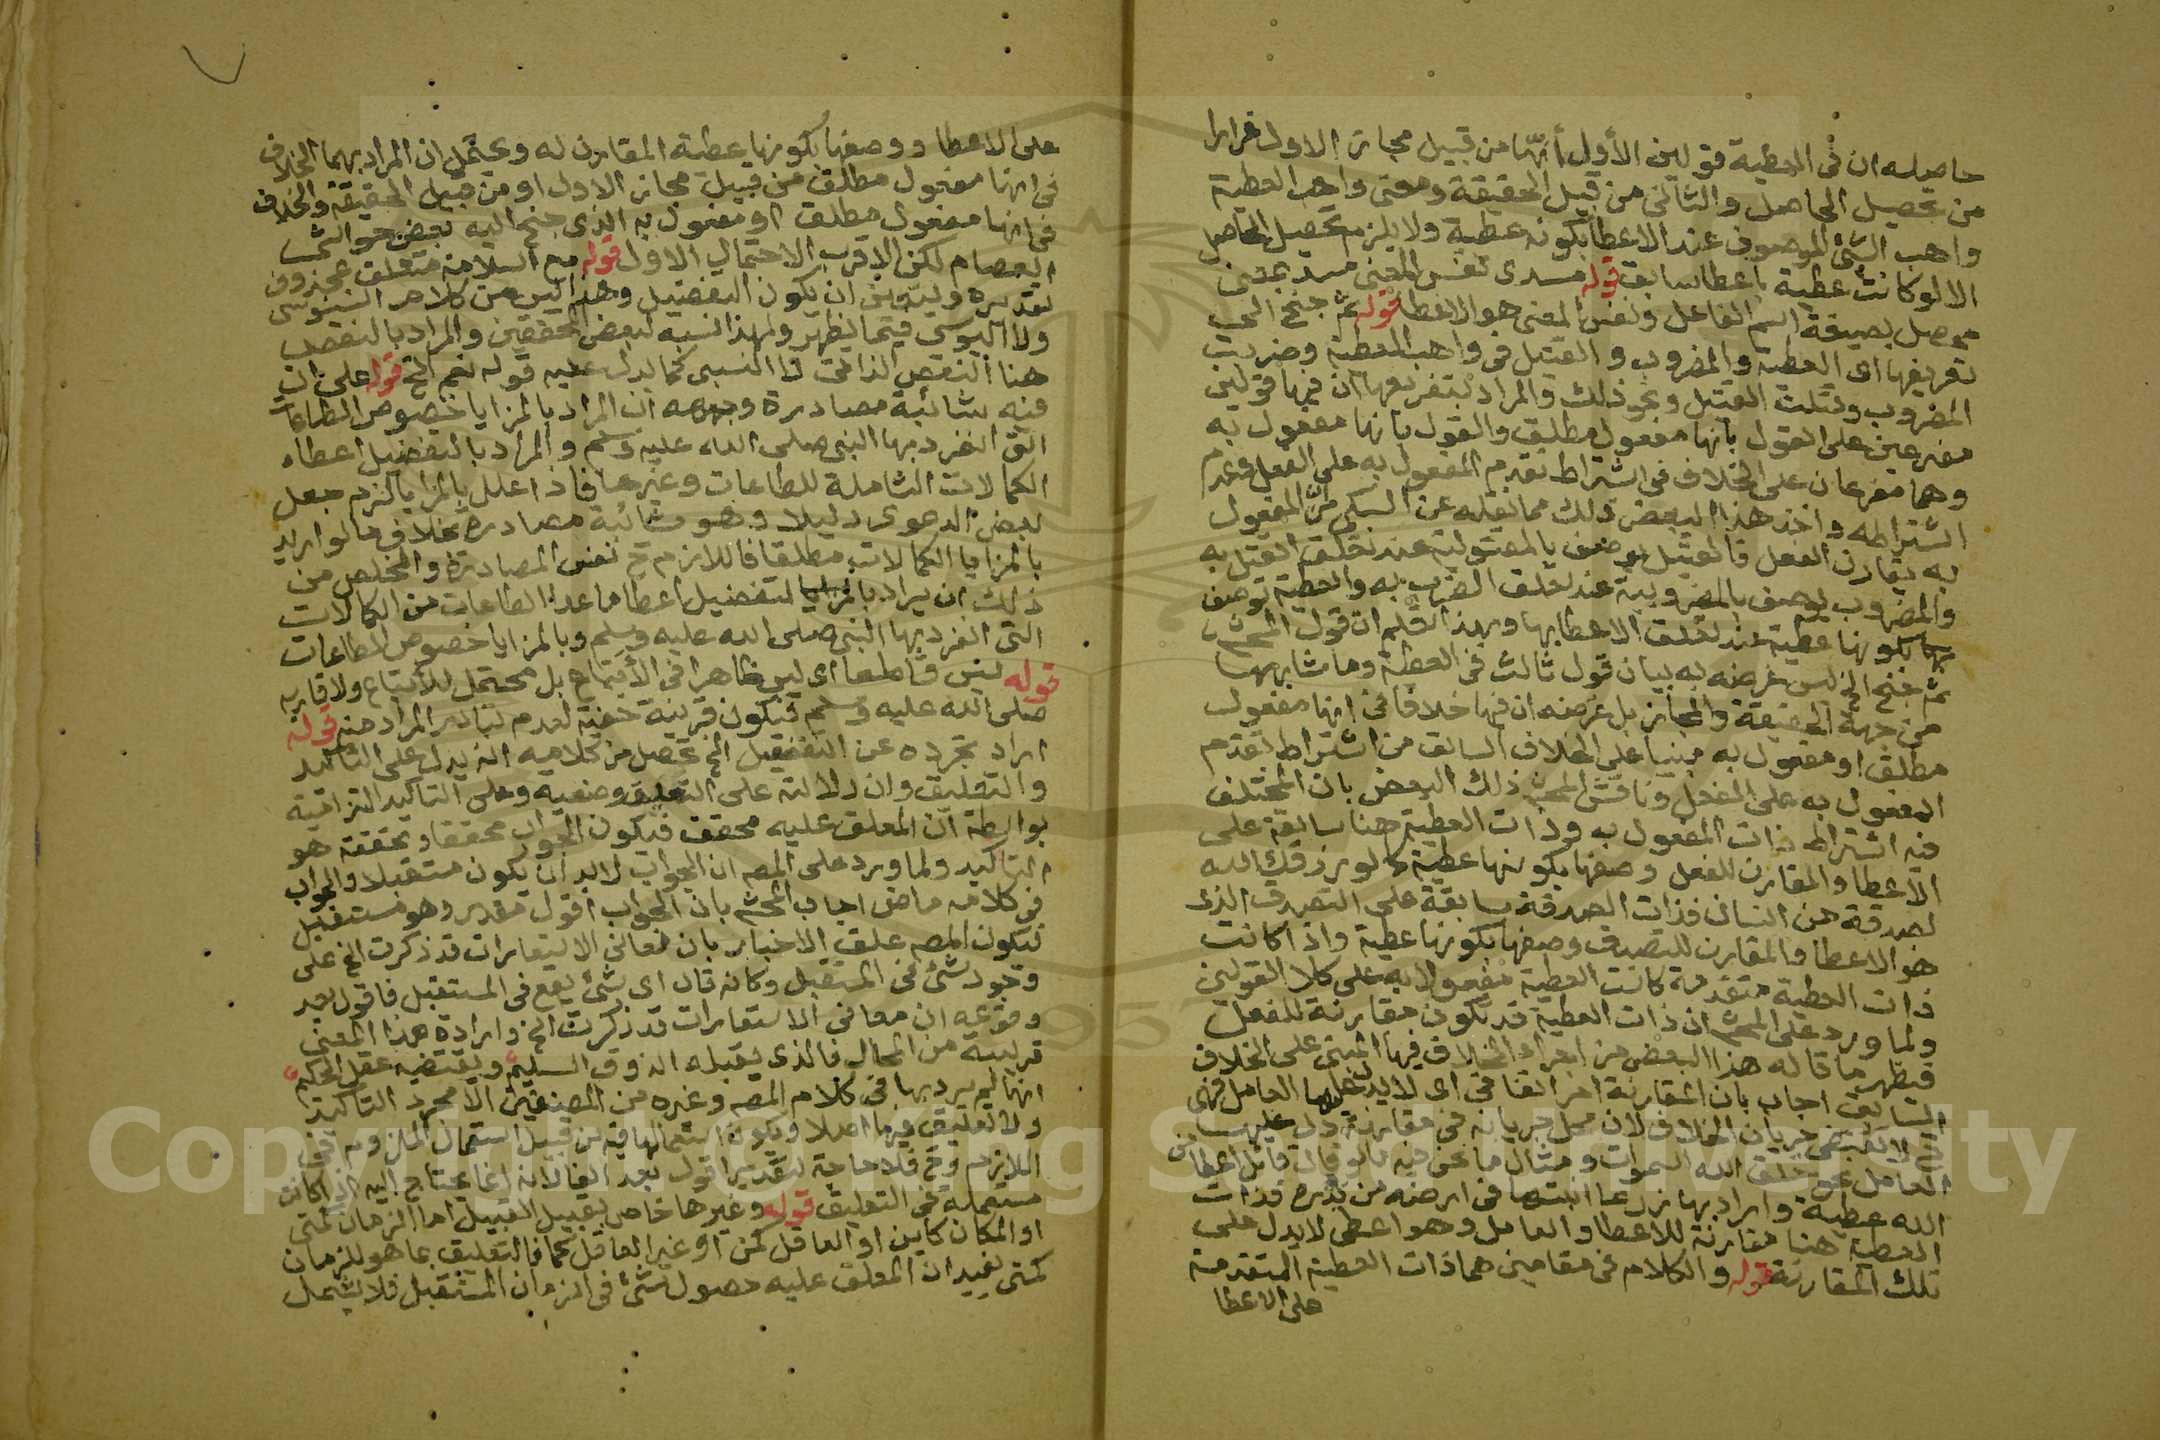 حاصله ان فى العطية قولين الأول أنها من قبيل مجاز الاول فرارا
من تحصيل الحاصل والثانى من قبيل الحقيقة ومعنى واهب العطية
واهب الشئ الموصوف عند الاعطا بكونه عطية ولا يلزم تحصيل الحاصل
الا لو كانت عطية باعطا سابق قوله مسدى نفس المعنى مسد بمعنى
موصل بصيغة اسم الفاعل ونفس المعنى هو الاعطا قوله ثم جنح الى
تفريعها اى العطية والمضروب والقتيل فى واهب العطية وضربت
المضروب وقتلت القتيل ونحو ذلك والمراد بتفريعها ان فيها قولين
مفرعين على القول بانها مفعول مطلق والقول بانها مفعول به
وهما مفرعان على الخلاف فى اشتراط تقدم المفعول به على الفعل وعدم
اشتراطه واخذ هذا البعض ذلك مما نقله عن السبكى من ان المفعول
به يقارن الفعل فالقتيل يوصف بالمقتولية عند تعلق القتل به
والمضروب يوصف بالمضروبية عند تعلق الضرب به والعطية توصف
بكونها عطية عند تعلق الاعطا بها وبهذا تعلم ان قول المحشى
ثم جنح الخ ليس غرضه به بيان قول ثالث فى العطية وما شابهها
من جهة الحقيقة والمجاز بل غرضه ان فيها خلافا فى انها مفعول
مطلق او مفعول به مبنيا على الخلاف السابق من اشتراط تقدم
المفعول به على الفعل وناقش المحشى ذلك البعض بان المختلف
فيه اشتراط ذات المفعول به وذات العطية هنا سابقة على
الاعطا والمقارن للفعل وصفها بكونها عطية كما لو رزقك الله
بصدقة من انسان فذات الصدقة سابقة على التصدق الذى
هو الاعطا والمقارن للتصدق وصفها بكونها عطية واذا كانت
ذات العطية متقدمة كانت العطية مفعولا به على كلا القولين
ولما ورد على المحشى ان ذات العطية قد تكون مقارنة للفعل
فيظهر ما قاله هذا البعض من اجراء الخلاف فيها المبنى على الخلاف
السابق اجاب بان المقارنة امر اتفاقى اى لا يدل عليها العامل فهى
لا تقتضى جريان الخلاف لان محل جريانه فى مقارنة دل عليها
العامل نحو خلق الله السموات ومثال ما نحن فيه ما لو قال قائل اعطانى
الله عطية واراد بها زرعا انبته فى ارضه من بذره فذات
العطية هنا مقارنة للاعطا والعامل وهو اعطى لا يدل على
تلك المقارنة قوله والكلام فى مقامين هما ذات العطية المتقدمة
على الاعطا
على الاعطا ووصفها بكونها عطية المقارن له ويحتمل ان المراد بهما الخلاف
فى انها مفعول مطلق من قبيل مجاز الاول او من قبيل الحقيقة والخلاف
فى انها مفعول مطلق او مفعول به الذى جنح اليه بعض حواشى
العصام لكن الاقرب الاحتمال الاول قوله مع السلامة متعلق بمحذوف
تقديره وليكن ان يكون التفضيل وهذا ليس من كلام السنوسى
ولا اليوسى فيما يظهر ولهذا نسبه لبعض المحققين والمراد بالنقص
هنا النقص الذاتى لا النسبى كما يدل عليه قوله نعم الخ قوله على ان
فيه شائبة مصادرة وجهه ان المراد بالمزايا خصوص الطاعات
التى انفرد بها النبى صلى الله عليه وسلم والمراد بالتفضيل اعطاء
الكمالات الشاملة للطاعات وغيرها فاذا علل بالمزايا لزم جعل
بعض الدعوى دليلا وهو شائبة مصادرة بخلاف ما لو اريد
بالمزايا الكمالات مطلقا فاللازم ح نفس المصادرة والمخلص من
ذلك ان يراد بالتفضيل اعطا ما عدا الطاعات من الكمالات
التى انفرد بها النبى صلى الله عليه وسلم وبالمزايا خصوص الطاعات
قوله ليس قاطعا اى ليس ظاهرا فى الأتباع بل محتمل للأتباع ولاقاربه
صلى الله عليه وسلم فيكون قرينة خفية لعدم تبادر المراد منه قوله
اراد تجرده عن التفصيل الخ تحصل من كلاميه انه يدل على التأكيد
والتعليق وان دلالته على التعليق وضعية وعلى التاكيد التزامية
بواسطة ان المعلق عليه محقق فيكون الجواب محققا وتحققه هو
التاكيد ولما ورد على المصه ان الجواب لابد ان يكون مستقبلا والجواب
فى كلامه ماض اجاب المحشى بان الجواب اقول مقدر وهو مستقبل
فيكون المصه علق الاخبار بان معانى الاستعارات قد ذكرت الخ على
وجود شئ فى المستقبل وكانه قال اى شئ يقع فى المستقبل فاقول بعد
وقوعه ان معانى الاستعارات قد ذكرت الخ وارادة هذا المعنى
قريبة من المحال فالذى يقبله الذوق السليم ويقتضيه عقل الحكيم
انها لم يرد بها فى كلام المصه وغيره من المصنفين الا مجرد التاكيد
ولا تعليق فيها اصلا ويكون استعمالها فيه من قبيل استعمال الملزوم فى
اللازم وح فلا حاجة لتقدير اقول بعد الفا لانه انما يحتاج اليه اذا كانت
مستعملة فى التعليق قوله وغيرها خاص بقبيل القبيل اما الزمان كمتى
او المكان كاين او العاقل كمن او غير العاقل كما فالتعليق بما هو للزمان
كمتى يفيد ان المعلق عليه حصول شئ فى الزمان المستقبل فلا يشمل